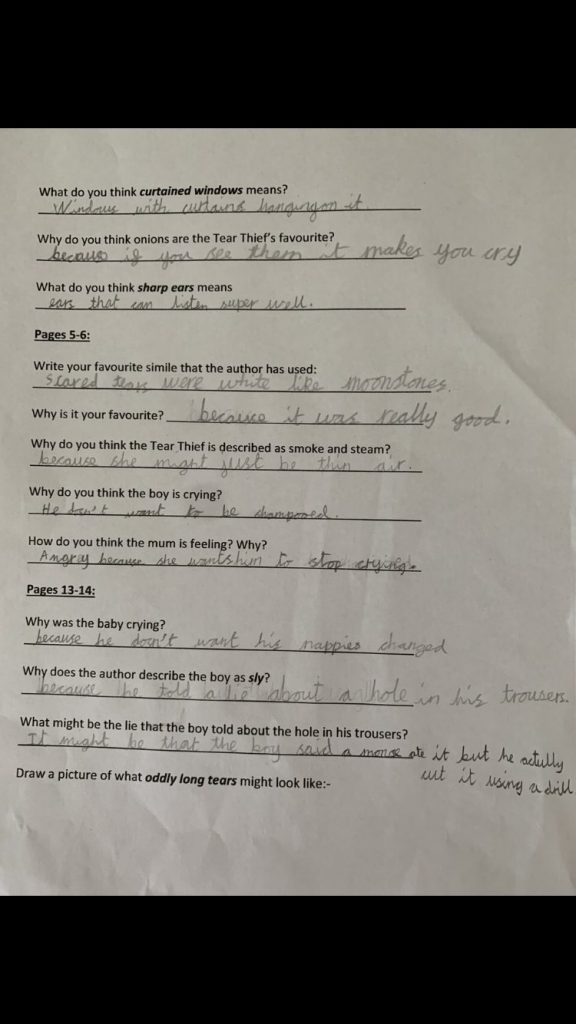 What do you think curtained windows means?
Windows with curtains hanging on it.
Why do you think onions are the Tear Thief's favourite?
because if you see them it makes you cry
What do you think sharp ears means
ears that can listen super well.
Pages 5-6:
Write your favourite simile that the author has used:
Scared tears were white like moonstones.
Why is it your favourite? because it was really good.
Why do you think the Tear Thief is described as smoke and steam?
because she might just be thin air.
Why do you think the boy is crying?
He don't want to be shampooed.
How do you think the mum is feeling? Why?
Angray because she wants him to stop crying.
Pages 13-14:
Why was the baby crying?
because he don't want his nappies changed
Why does the author describe the boy as sly?
because he told a lie about a hole in his trousers.
What might be the lie that the boy told about the hole in his trousers?
It might be that the boy said a ate it but he actully
cut it using a drill
Draw a picture of what oddly long tears might look like:-